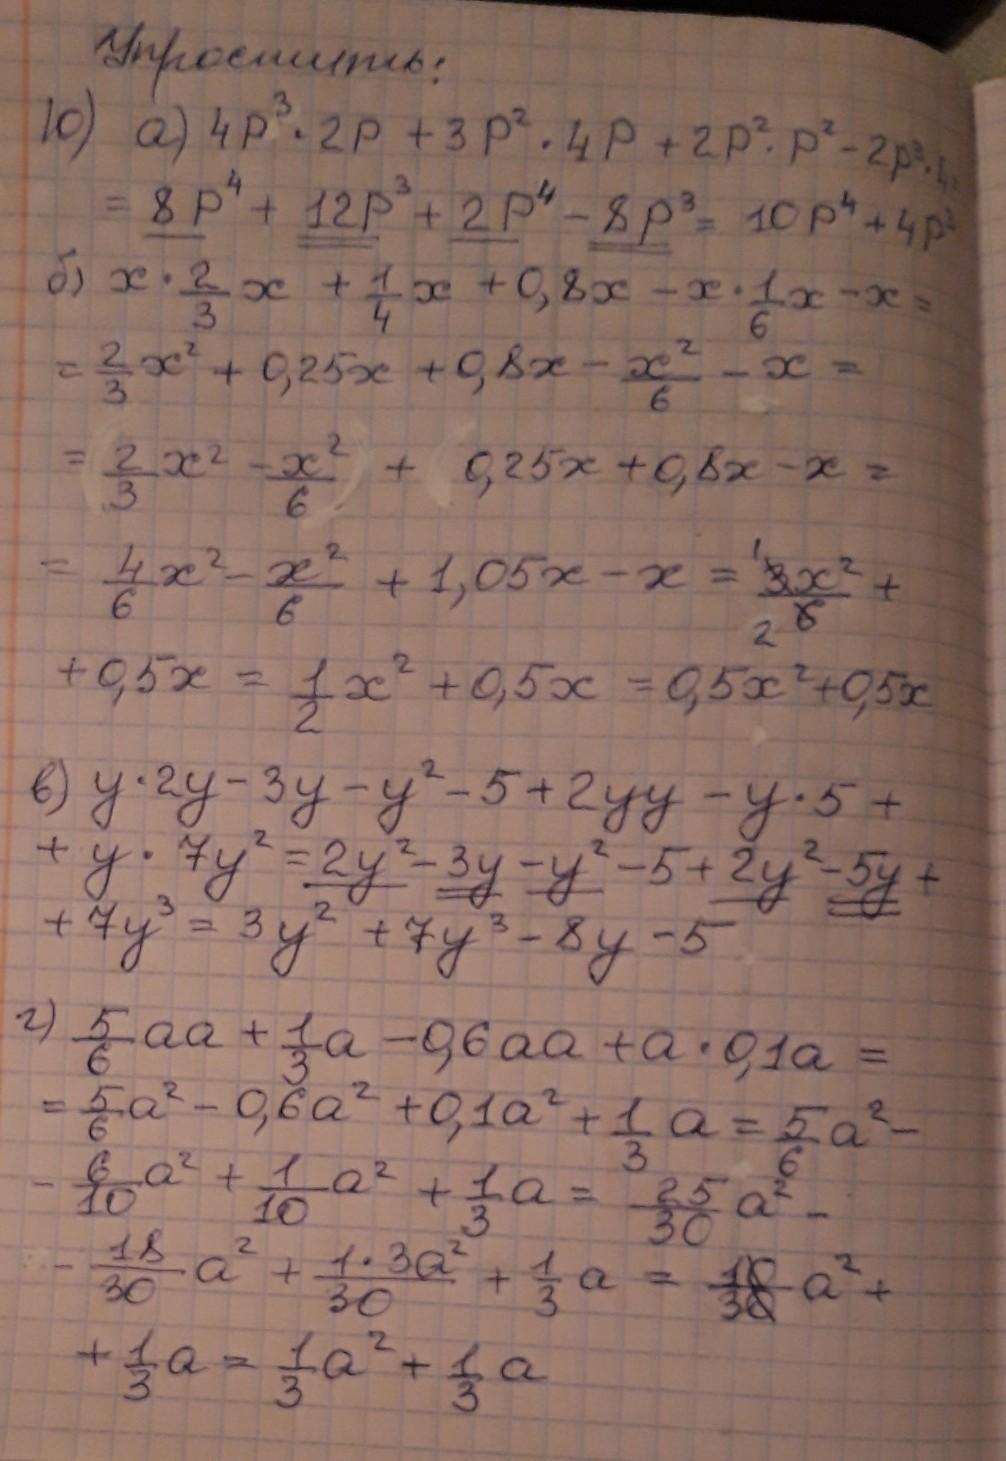 Упростить:
10) а) 4p³·2p + 3p²·4p + 2p²·p² - 2p³·4
= 8p⁴ + 12p³ + 2p⁴ - 8p³ = 10p⁴ + 4p³
б) x·2/3x + 1/4x + 0,8x - x·1/6x - x =
= 2/3x² + 0,25x + 0,8x - x²/6 - x =
= 2/3x² - x²/6 + 0,25x + 0,8x - x =
= 4/6x² - x²/6 + 1,05x - x = 3x²/6 +
+ 0,5x = 1/2x² + 0,5x = 0,5x² + 0,5x
в) y·2y - 3y - y² - 5 + 2yy - y·5 +
+ y·7y² = 2y² - 3y - y² - 5 + 2y² - 5y +
+ 7y³ = 3y² + 7y³ - 8y - 5
г) 5/6aa + 1/3a - 0,6aa + a·0,1a =
= 5/6a² - 0,6a² + 0,1a² + 1/3a = 5/6a² -
- 6/10a² + 1/10a² + 1/3a = 25/30a² -
- 18/30a² + 1·3a²/30 + 1/3a = 10/30a² +
+ 1/3a = 1/3a² + 1/3a